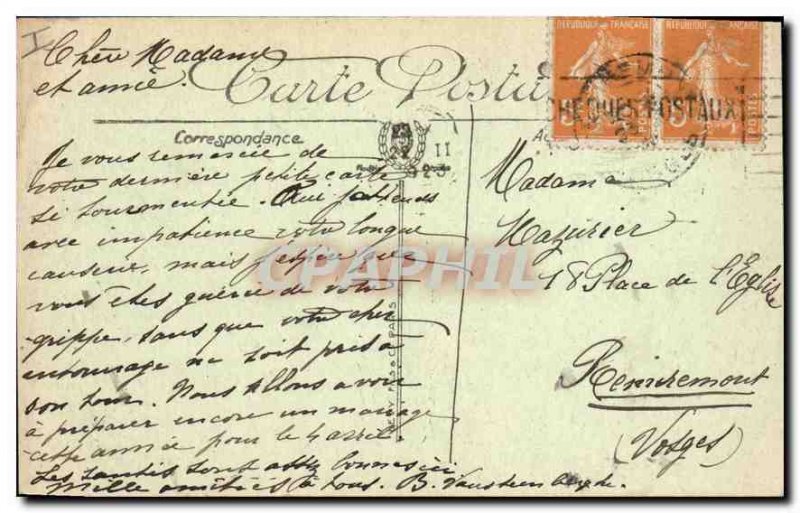 Chère Madame
et amie.
Carte Postale
RÉPUBLIQUE FRANÇAISE
RÉPUBLIQUE FRANÇAISE
CHEQUES POSTAUX
Correspondance
II
23
Je vous remercie de
votre dernière petite carte
si tourmentée. Oui j'attends
avec impatience votre longue
causerie, mais j'espère que
vous êtes guérie de votre
grippe, sans que votre cher
entourage ne soit pris à
son tour. Nous allons avoir
à préparer encore un mariage
cette année pour le
Les santés sont assez bonnes ici
mille amitiés à tous. B.
Madame
Mazurier
18 Place de l'Eglise
Remiremont
(Vosges)
CPAPHIL